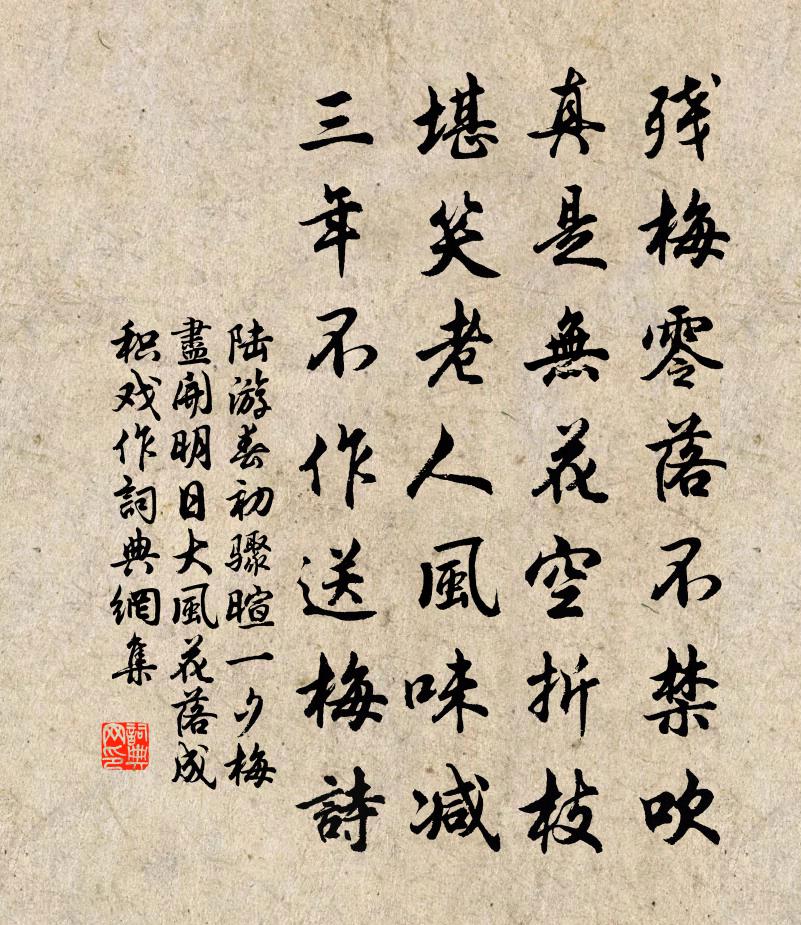 残梅零落不禁吹
真是無花空折枝
堪笑老人風味减
三年不作送梅詩
陆游春初骤暄一夕梅
盡開明日大風花落成
积戏作詞典網集
詞典
网印